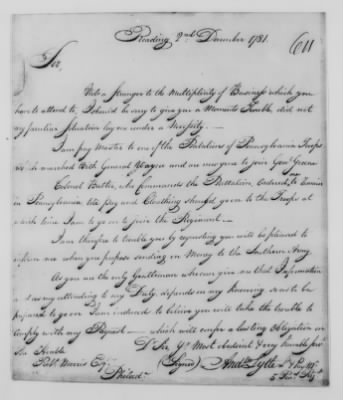 Reading 2nd December 1781.
611
Sir
Not a Stranger to the Multiplicity of Business which you
have to attend to, I should be sorry to give you a Moments trouble, did not
my peculiar Situation lay me under a Necessity. —
I am Pay Master to one of the Battalions of Pennsylvania Troops
which marched with General Wayne and are now gone to join Genl. Greene
Colonel Butler, who Commands the Battalion, ordered me to Remain
in Pennsylvania till Pay and Cloathing should be given to the Troops at
which time I am to go on to join the Regiment —
I am therefore to trouble you by requesting you will be pleased to
inform me when you propose sending on Money to the Southern Army.
As you are the only Gentleman who can give me that Information
and as my attending to my Duty, depends on my knowing when to be
prepared to go on I am induced to believe you will take the trouble to
comply with my Request — which will confer a lasting Obligation on
Dr Sir Yr Most Obedient & very humble
The Honble
(Signed) Andw. Lytle
Robt. Morris Esqr.
Philada